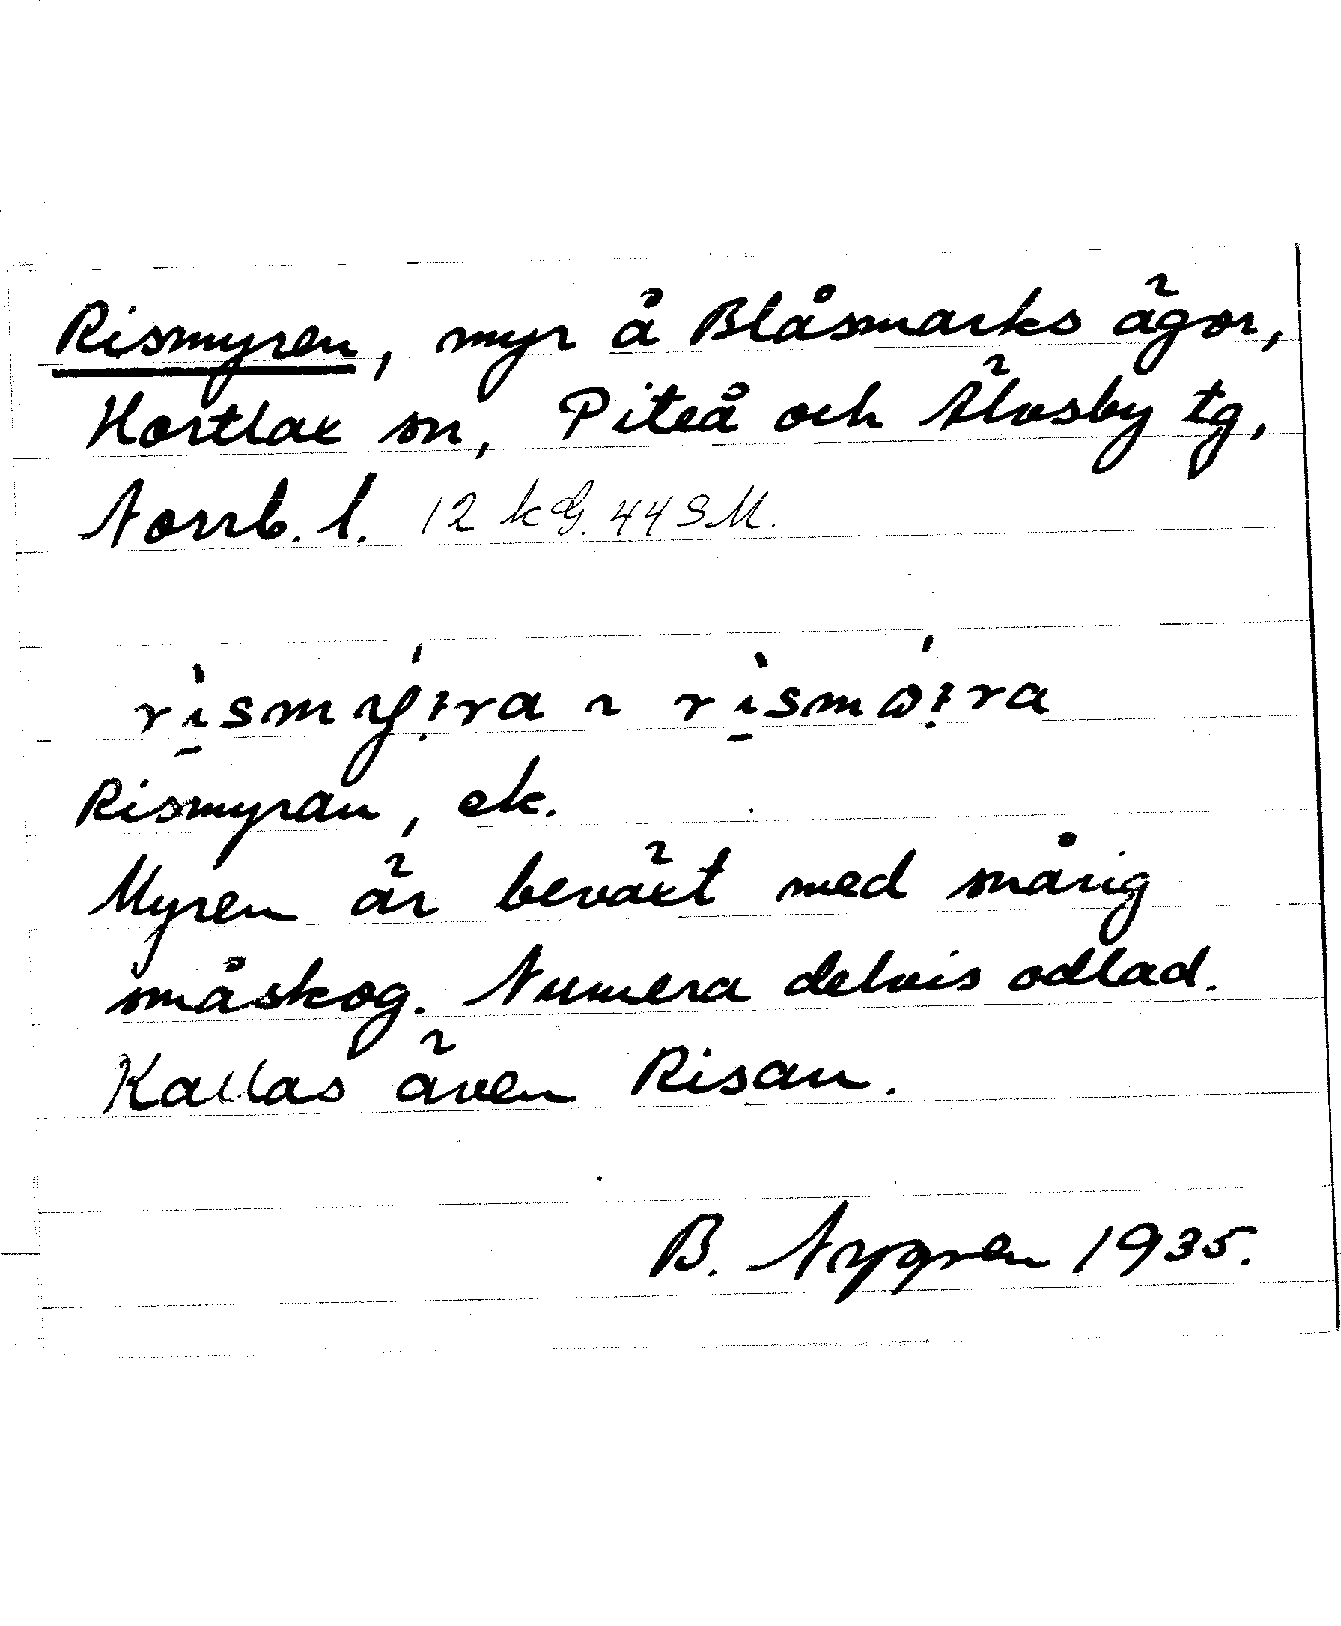 Rismyren, myr å Blåsmarks ägor,
Hortlax sn, Piteå och Älvsby tg,
Norrb. l. 12 kG. 44 SM.
rismy:ra ~ rismø:ra
Rismyran, ek.
Myren är beväxt med snårig
småskog. Numera delvis odlad.
Kallas även Risan.
B. Nygren 1935.